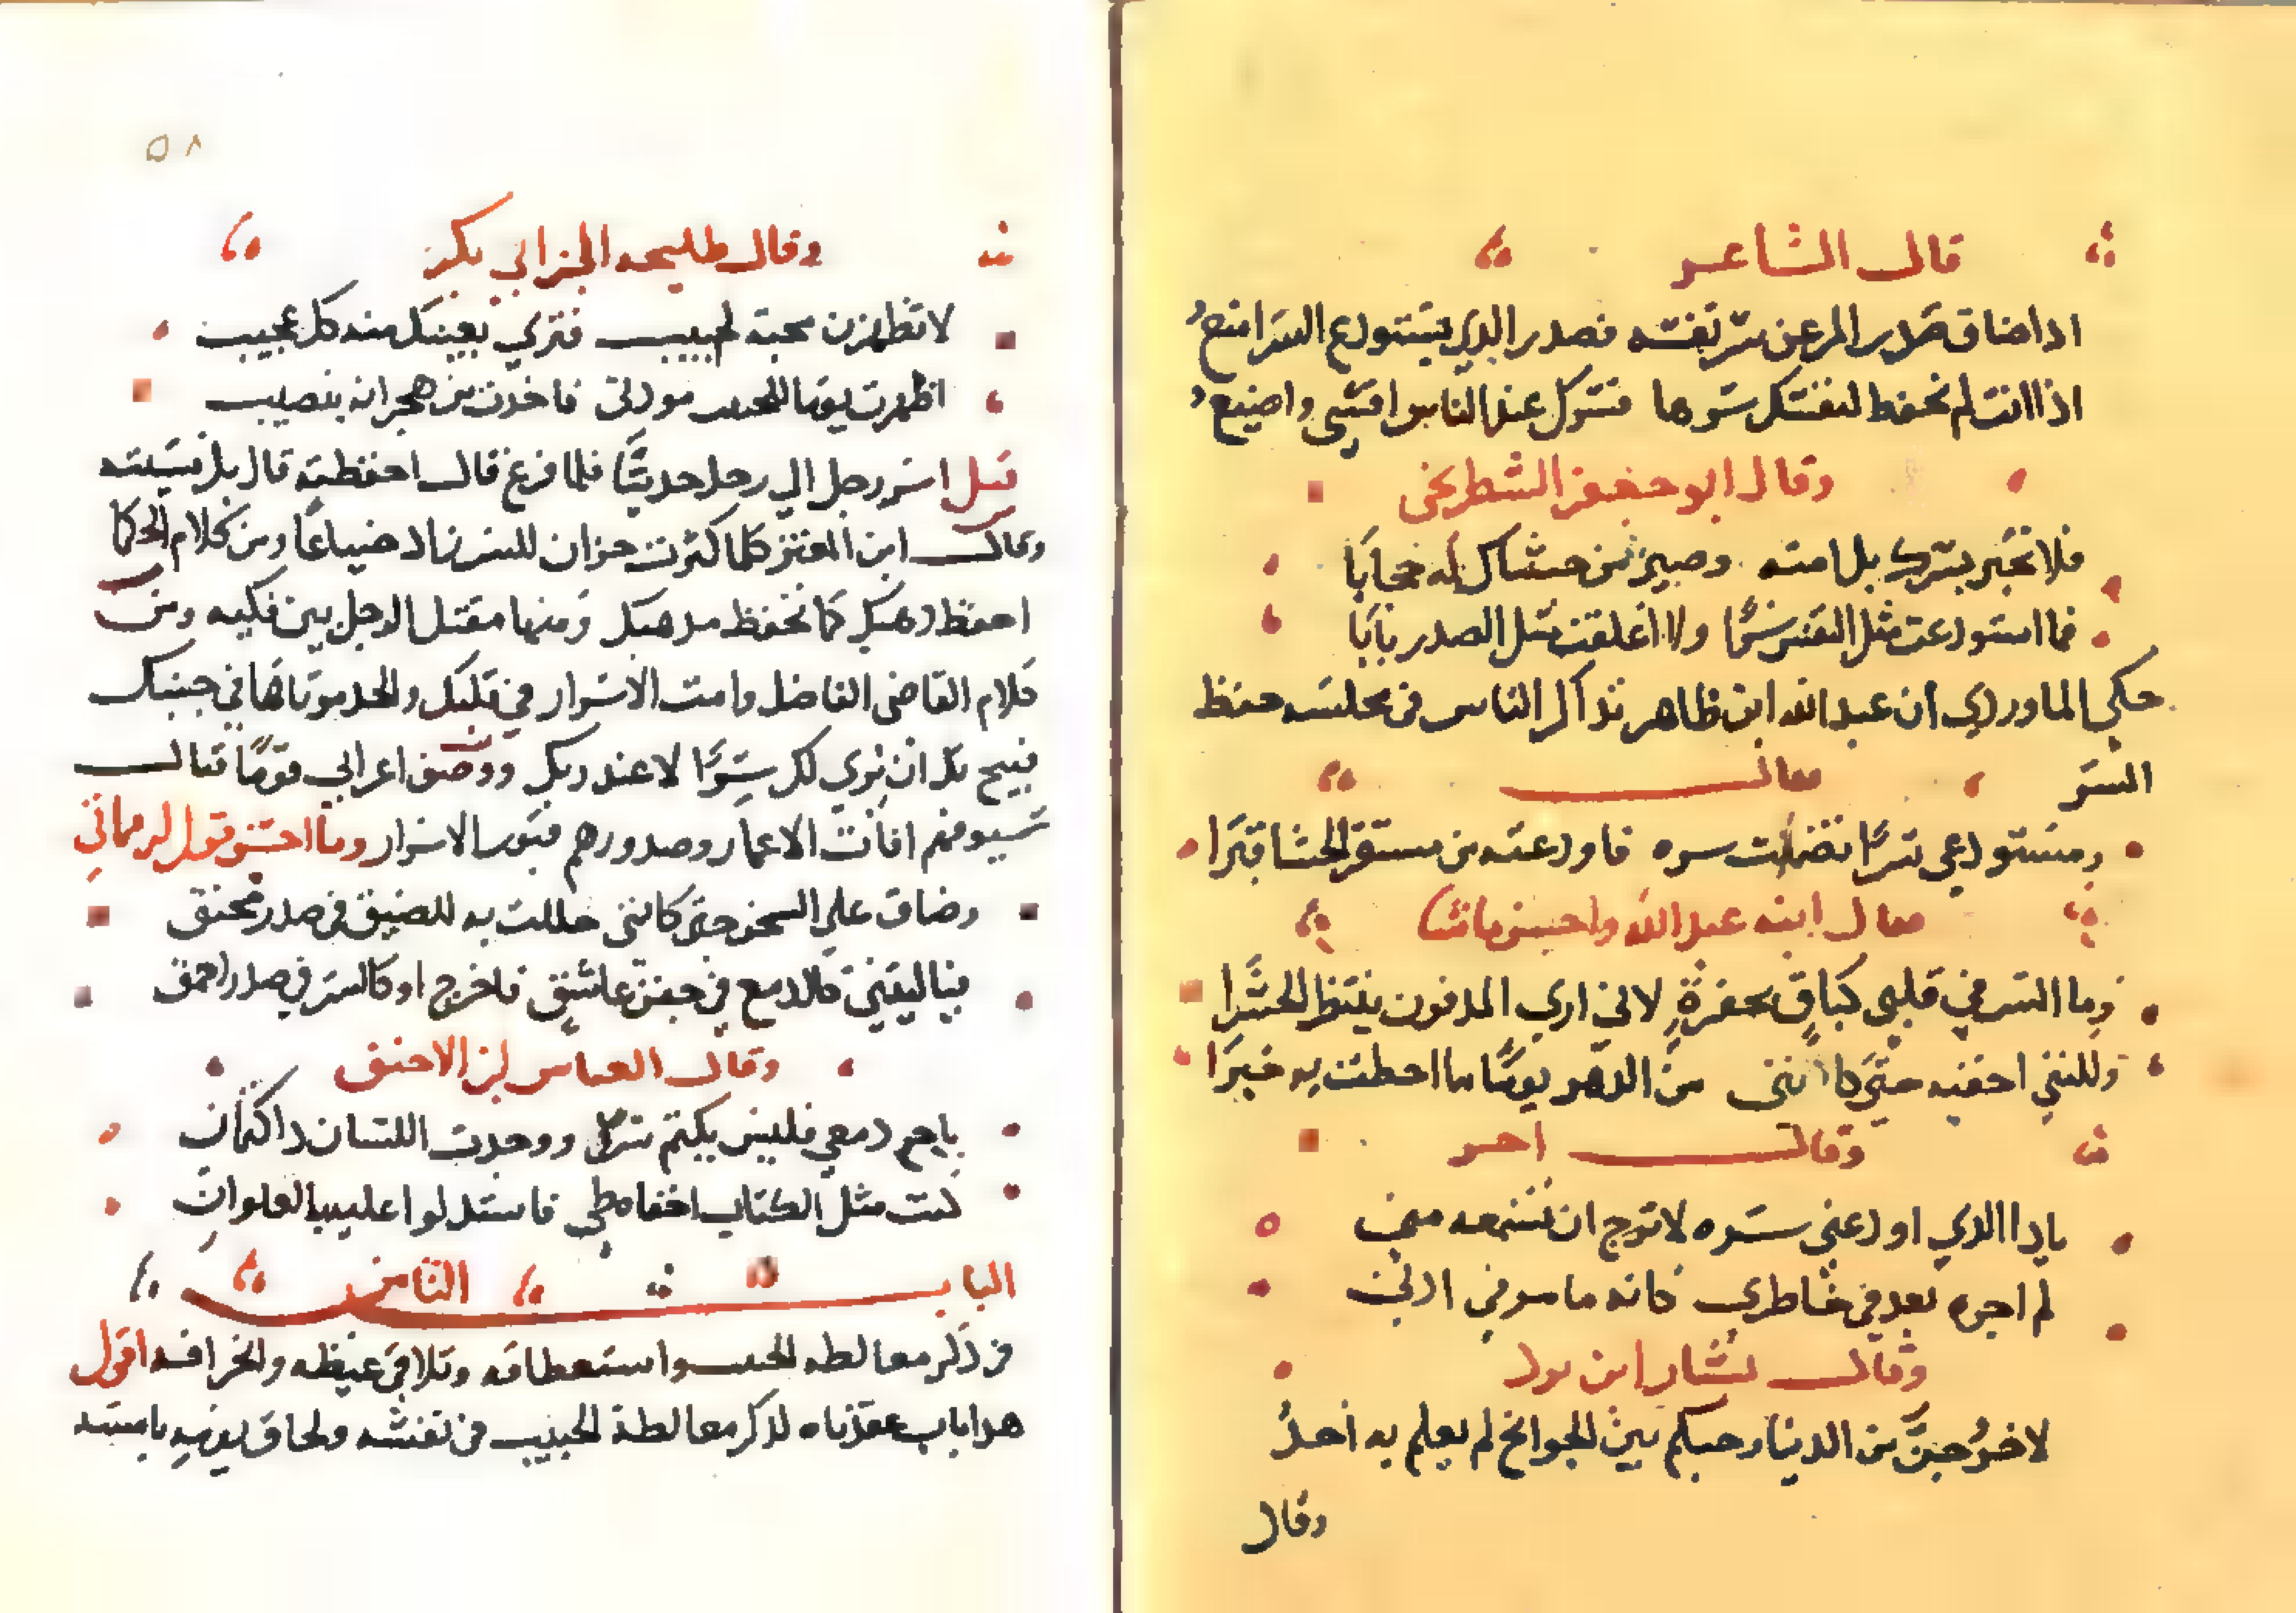 قال الشاعر
اذا ضاق صدر المرء عن سر نفسه فصدر الذي يستودع السر اضيع
اذا انت لم تحفظ لنفسك سرها فسرك عند الناس افشى واضيع
وقال ابو جعفر الشطرنجي
فلا تخبر بسرك بل امته وصير من حشاك له حجابا
فما استودعت مثل النفس سرا ولا اغلقت مثل الصدر بابا
حكى الماوردي ان عبد الله ابن طاهر تذاكر الناس في مجلسه حفظ
السر فقال
ومستودعي سرا تضمنت سره فاودعته من مستقر الحشا قبرا
فقال ابنه عبد الله واحسن ما شا
وما السر في قلبي كباق بحفرة لاني ارى المدفون ينتظر الحشرا
ولكنني اخفيه حتى كانني من الدهر يوما ما احطت به خبرا
وقال اخر
يا ذا الذي اودعني سره لا ترج ان تسمعه مني
لم اجره بعد في خاطري كانه ما مر في اذني
وقال بشار ابن برد
لاخرجن من الدنيا وحبكم بين الجوانح لم يعلم به احد
وقال
٥٨
وقال طليحه الجزا بي بكر
لا تظهرن محبة لحبيب فترى بعينك منه كل عجيب
اظهرت يوما للحبيب مودتي فاخذت من هجرانه بنصيب
قيل اسر رجل الى رجل حديثا فلما فرغ قال احفظته قال بل نسيته
وقال ابن المعتز كلما كثرت خزان للسر زاد ضياعا ومن كلام الحكما
احفظ ذهبك كما تحفظ مذهبك ومنها مقتل الرجل بين فكيه ومن
كلام القاضي الفاضل وامت الاسرار في قلبك والحد موتاها في جنبك
قبيح بك ان نرى لك سرا لا عند ربك ووصف اعرابي قوما فقال
سيوفهم افات الاعمار وصدورهم قبور الاسرار وما احسن قول الرماني
وضاق علي السجن حتى كانني حللت به للضيق في صدر محنق
فيا ليتني كالدمع في جفن عاشق فاخرج او كالسر في صدر احمق
وقال العباس بن الاحنف
باح دمعي فليس يكتم سرا ووجدت اللسان ذا كتمان
كنت مثل الكتاب اخفاه طي فاستدلوا عليه بالعلوان
الباب الثامن
في ذكر مغالطه الحبيب واستعطافه وتلافي غيظه وانحرافه اقول
هذا باب عقدناه لذكر مغالطة الحبيب في نفسه